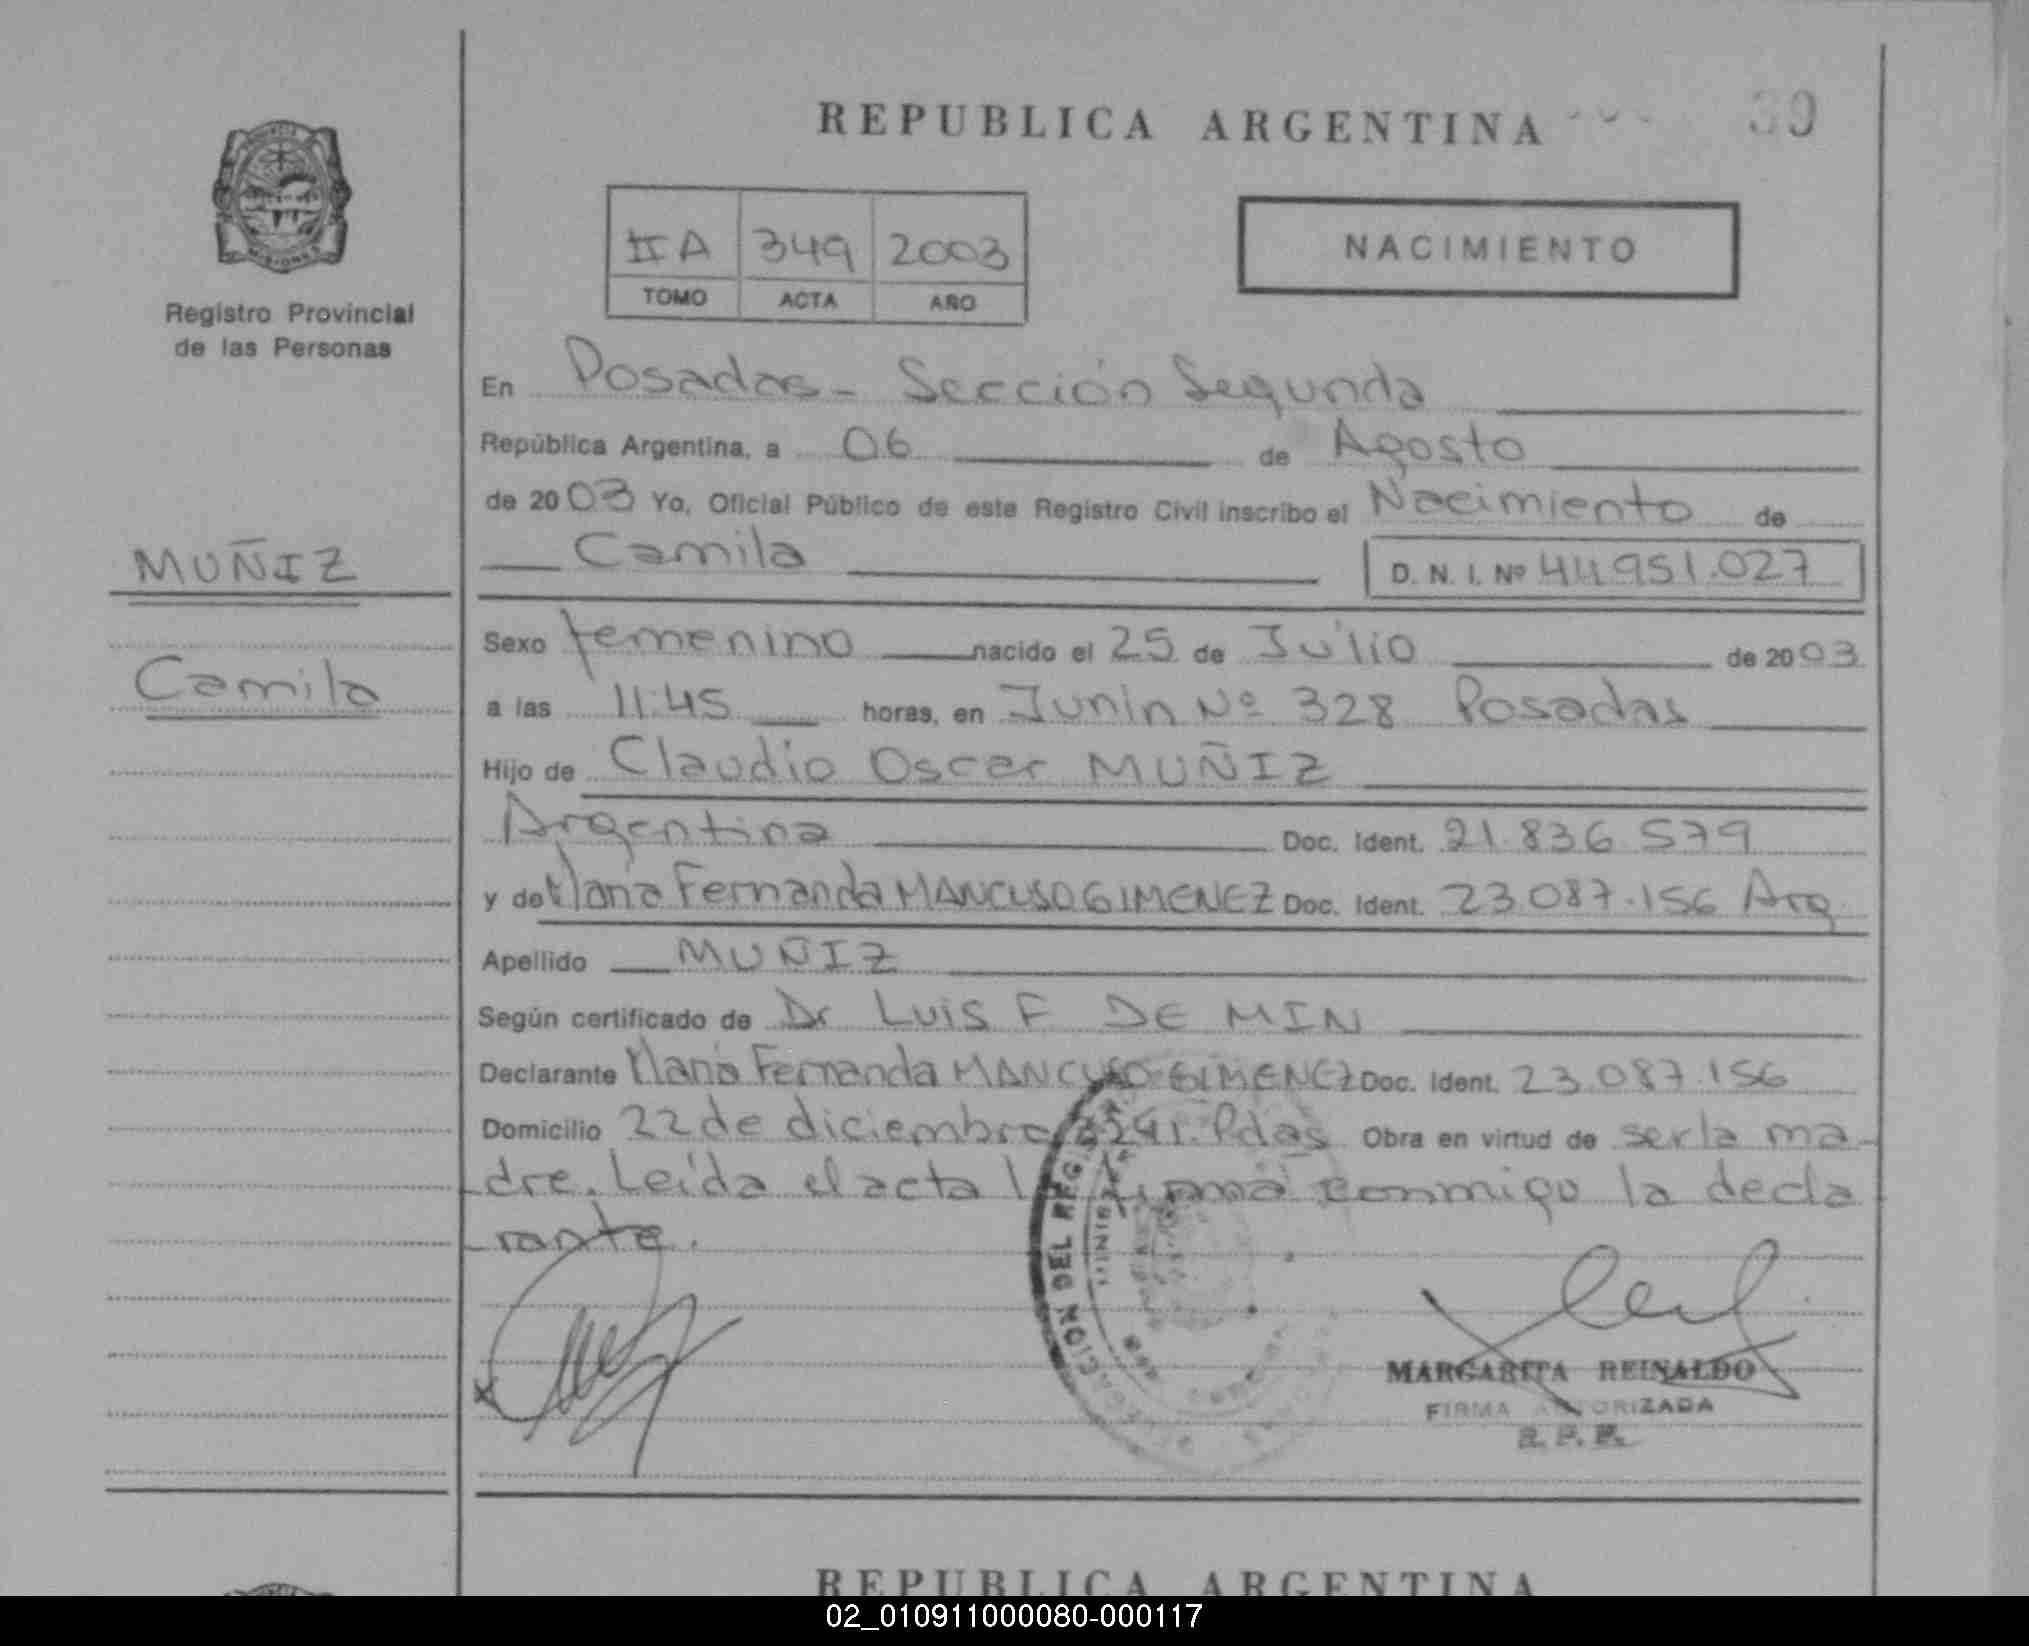 REPUBLICA ARGENTINA
39
IIA 349 2003
TOMO ACTA AÑO
NACIMIENTO
PROVINCIA
MISIONES
Registro Provincial
de las Personas
En Posadas - Sección Segunda
República Argentina, a 06 de Agosto
de 2003 Yo, Oficial Público de este Registro Civil inscribo el Nacimiento de
Camila D. N. I. Nº 44.951.027
MUÑIZ
Camila
Sexo femenino nacido el 25 de Julio de 2003
a las 11:45 horas, en Junin Nº 328 Posadas
Hijo de Claudio Oscar MUÑIZ
Argentina Doc. Ident. 21.836.579
y de María Fernanda MANCUSO GIMENEZ Doc. Ident. 23.087.156 Arg
Apellido MUÑIZ
Según certificado de Dr Luis F DE MIN
Declarante María Fernanda MANCUSO GIMENEZ Doc. Ident. 23.087.156
Domicilio 22 de diciembre Pdas Obra en virtud de ser la ma-
dre. Leída el acta conmigo la decla
rante.
DEL REGIS
MARGARITA REINALDO
FIRMA AUTORIZADA
R. P. P.
REPUBLICA ARGENTINA
02_010911000080-000117